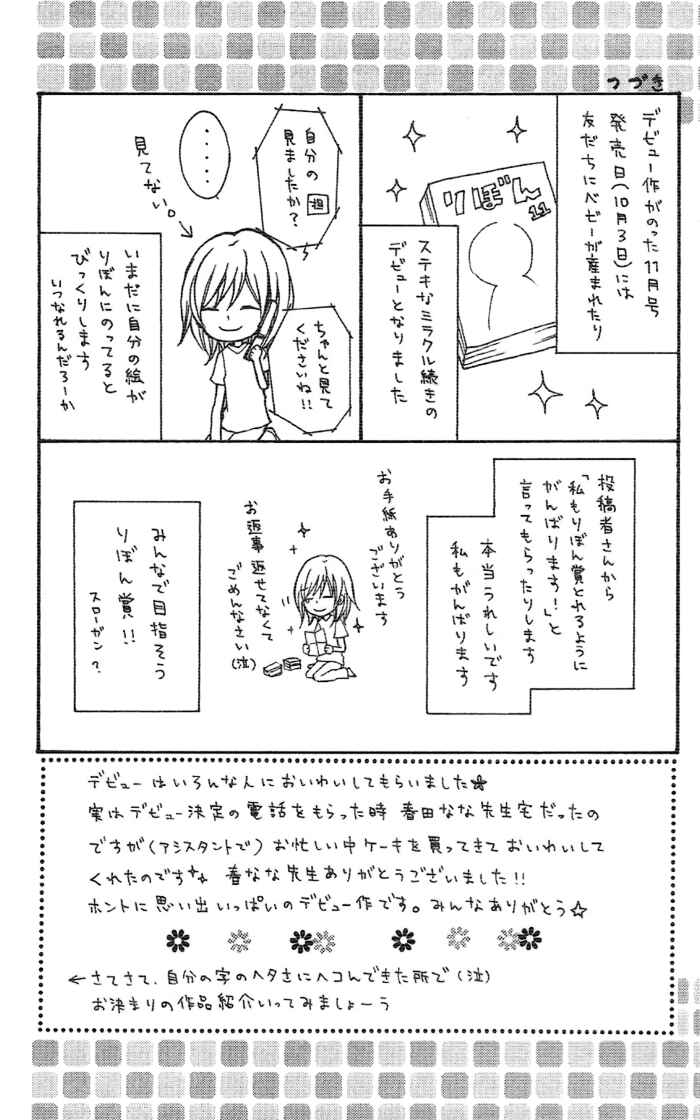 つづき
デビュー作がのった11月号
発売日(10月3日)には
友だちにベビーが産まれたり
りぼん
11
ステキなミラクル続きの
デビューとなりました
自分の
見ましたか?
担
・・・・・
見てない。
ちゃんと見て
くださいね!!
いまだに自分の絵が
りぼんにのってると
びっくりします
いつなれるんだろーか
投稿者さんから
「私もりぼん賞とれるように
がんばります!」と
言ってもらったりします
本当うれしいです
私もがんばります
お手紙ありがとう
ございます
お返事返せてなくて
ごめんなさい(泣)
みんなで目指そう
りぼん賞!!
スローガン?
デビューはいろんな人においわいしてもらいました★
実はデビュー決定の電話をもらった時 春田なな先生宅だったの
ですが(アシスタントで) お忙しい中ケーキを買ってきておいわいして
くれたのです 春なな先生ありがとうございました!!
ホントに思い出いっぱいのデビュー作です。みんなありがとう☆
←さてさて、自分の字のヘタさにヘコんできた所で(泣)
お決まりの作品紹介いってみましょーう